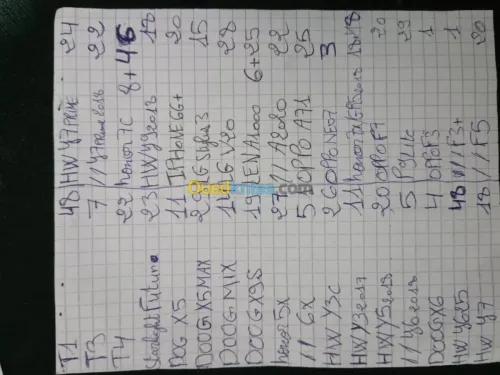 T1 48 HW Y7 PRIME 24
T3 7 // Y7 PRIME 2018 22
T4 22 honor 7C 8+46
Starlight Future 23 HW Y9 2018 18
DOG X5 11 IPHONE 6G+ 20
DOOG X5MAX 29 LG Stylus 3 15
DOOG MIX 14 LG V20 28
DOOG X9S 19 LENA1000 6+25
honor 5X 27 // A2020 22
// 6X 5 OPPO A71 25
HW Y3C 26 OPPO NEO7 3
HW Y3 2017 11 honor
HW Y5 2018 20 OPPO F7 20
// Y6 2018 5 P9 lite 29
DOOG X6 4 OPO F3 1
HW Y625 48 // F3+ 1
HW Y7 18 // F5 20